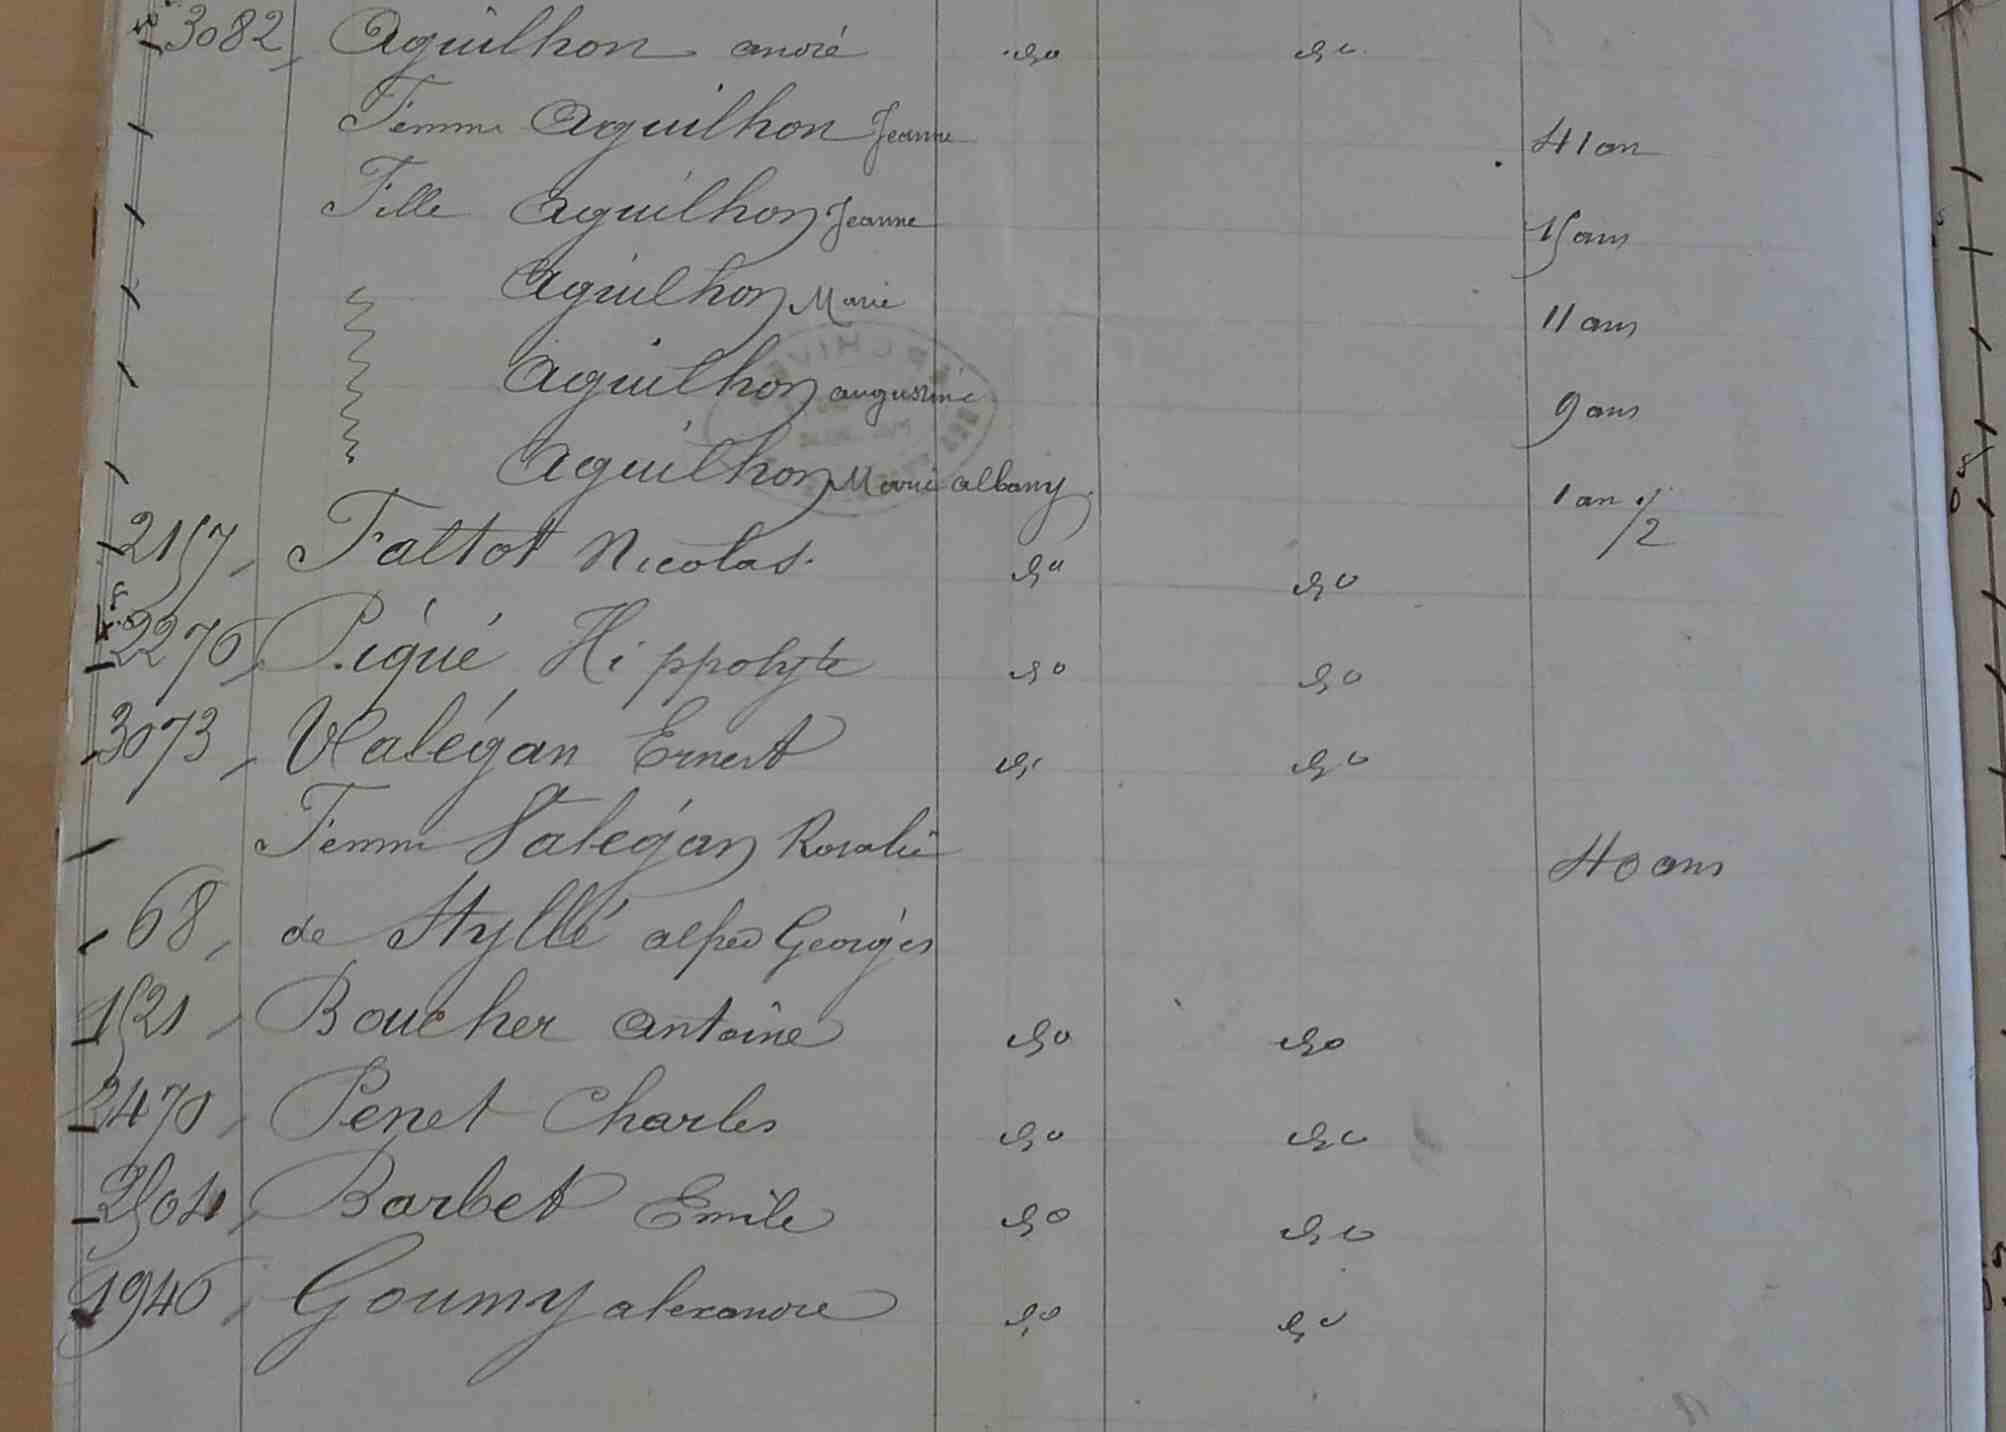 3082, Aguilhon André do do
Femme Aguilhon Jeanne 41 an
Fille Aguilhon Jeanne 15 ans
Aguilhon Marie 11 ans
Aguilhon Augustine 9 ans
Aguilhon Marie Albany 1 an 1/2
2157, Faltot Nicolas. do do
2276, Piqué Hippolyte do do
3073, Valégan Ernest do do
Femme Valégan Rosalie 40 ans
68, de Styllé Alfred Georges
1521, Boucher Antoine do do
2470, Penet Charles do do
2504, Barbet Emile do do
1946, Goumy Alexandre do do